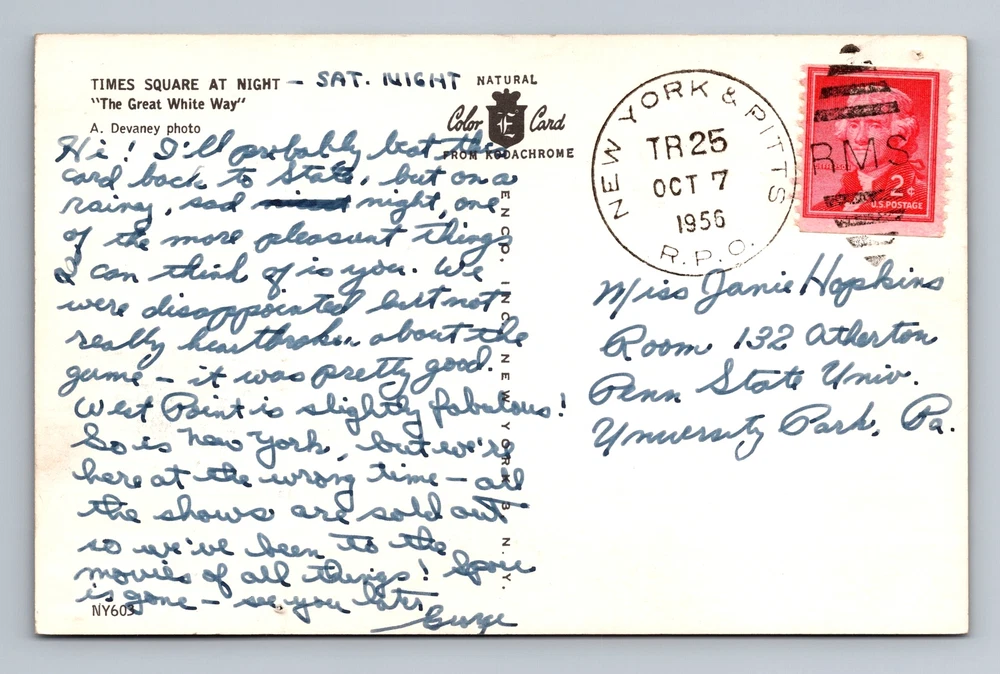 TIMES SQUARE AT NIGHT - SAT. NIGHT
"The Great White Way"
A. Devaney photo
NATURAL
Color E Card
FROM KODACHROME
Hi! I'll probably beat this
card back to State, but on a
rainy, sad night, one
of the more pleasant things
I can think of is you. We
were disappointed but not
really heartbroken about the
game - it was pretty good.
West Point is slightly fabulous!
So is New York, but we're
here at the wrong time - all
the shows are sold out
so we've been to the
movies of all things! Space
is gone - see you later
George
NY603
ENCP. INC. NEW YORK 3, N. Y.
NEW YORK & PITTS
TR 25
OCT 7
1956
R.P.O.
RMS
2¢
U.S. POSTAGE
Miss Janie Hopkins
Room 132 Atherton
Penn State Univ.
University Park, Pa.